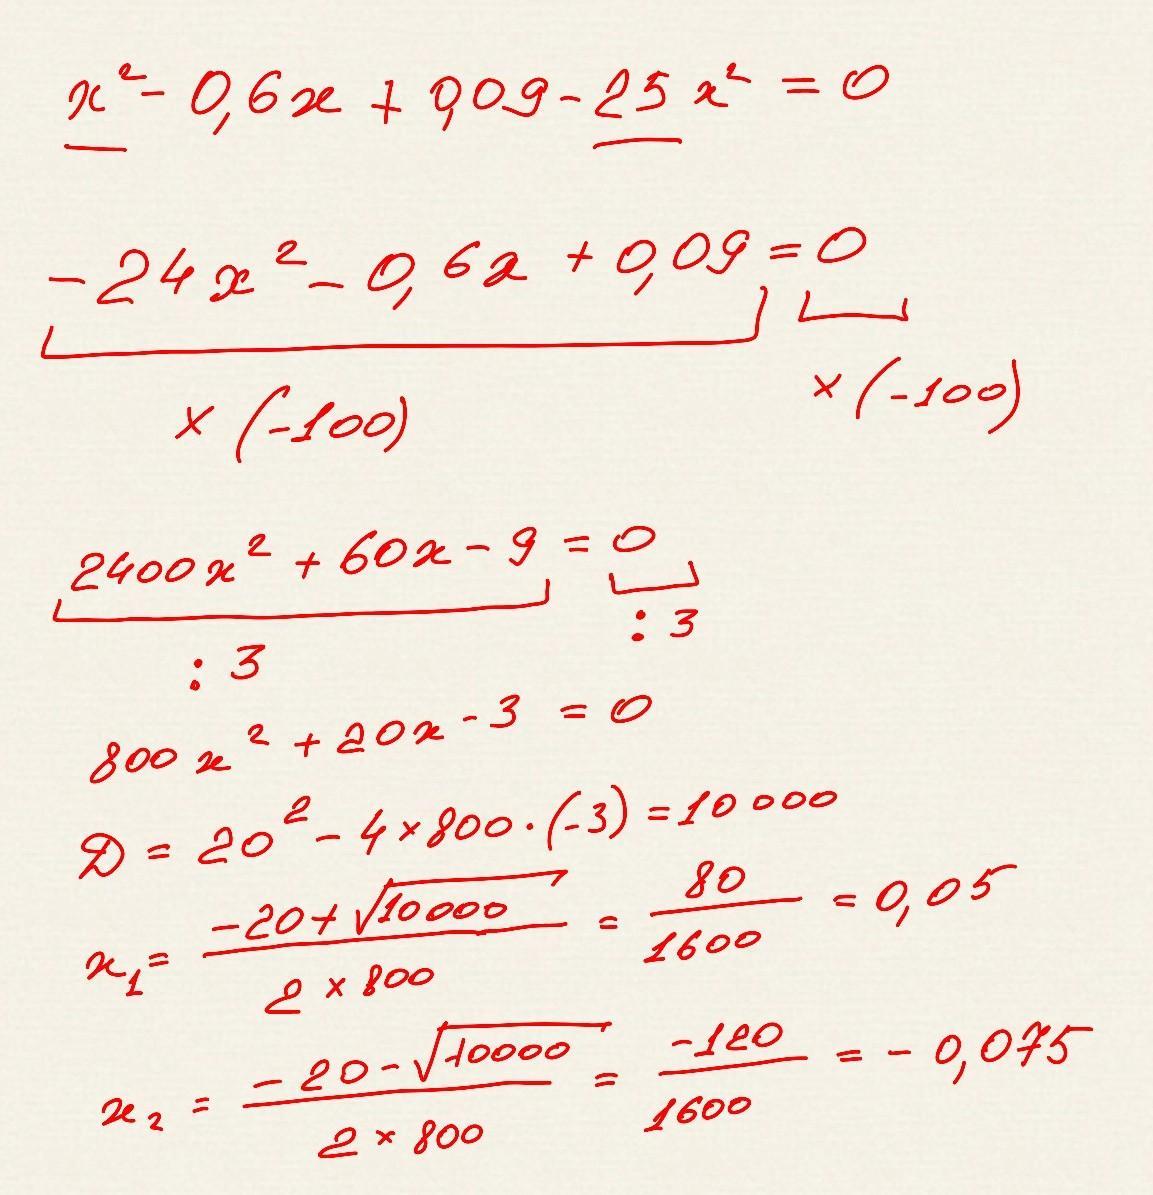 x² - 0,6x + 0,09 - 25x² = 0
-24x² - 0,6x + 0,09 = 0
× (-100) × (-100)
2400x² + 60x - 9 = 0
: 3 : 3
800x² + 20x - 3 = 0
D = 20² - 4 × 800 · (-3) = 10000
x₁ = (-20 + √10000) / (2 × 800) = 80 / 1600 = 0,05
x₂ = (-20 - √10000) / (2 × 800) = -120 / 1600 = -0,075